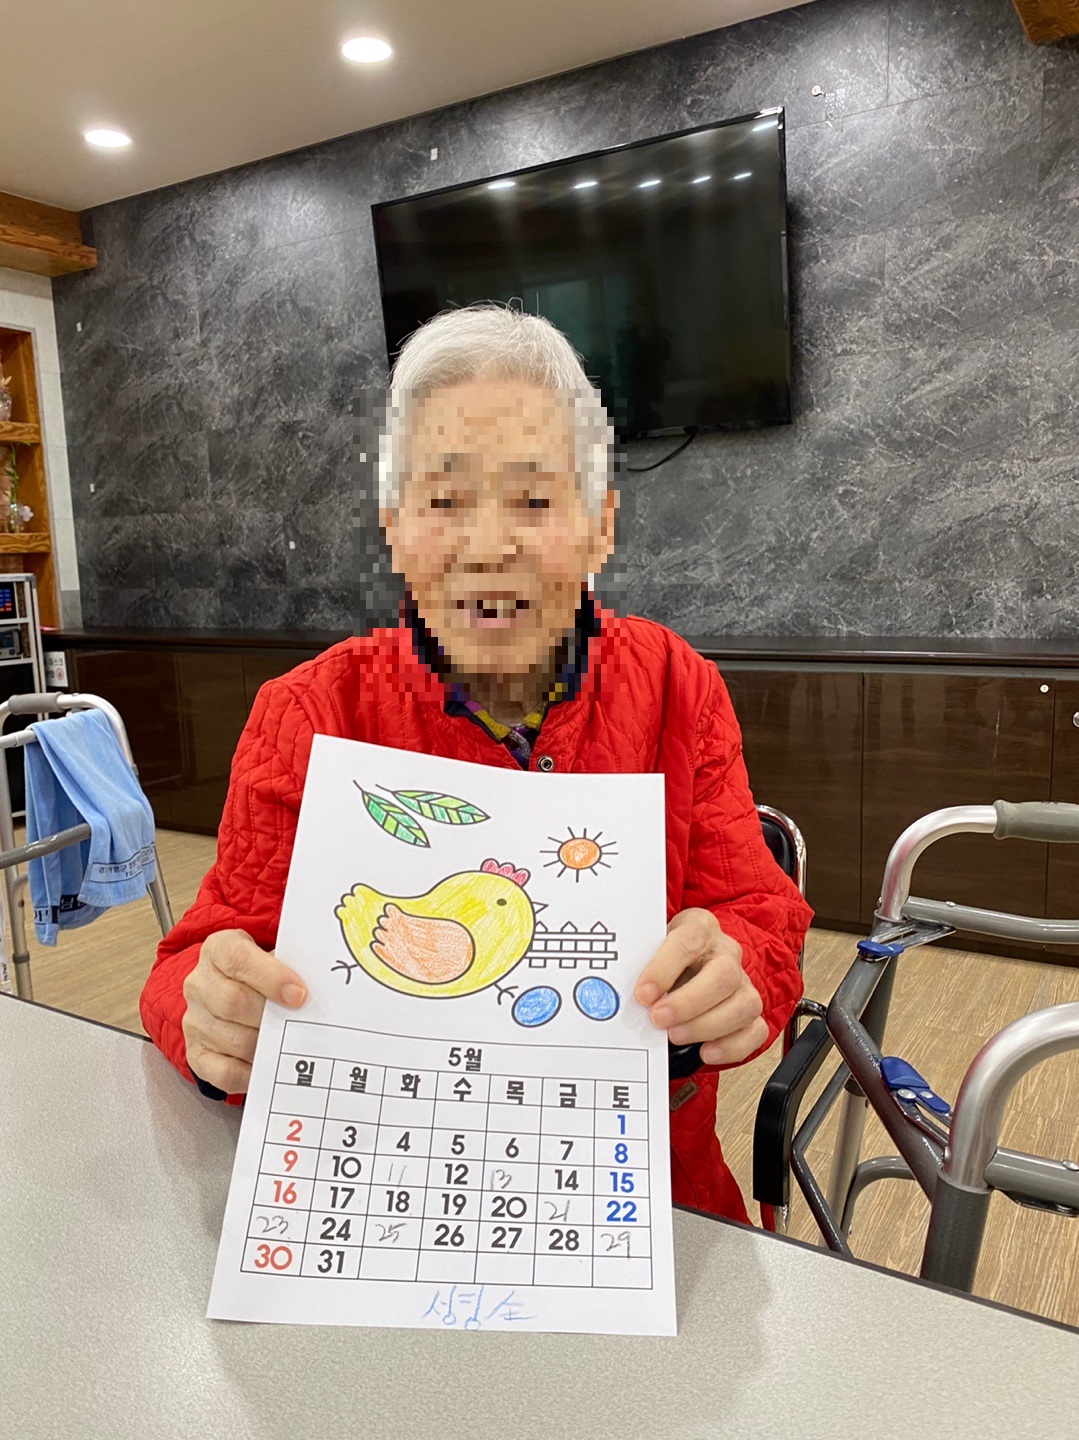 5월
일 월 화 수 목 금 토
1
2 3 4 5 6 7 8
9 10 11 12 13 14 15
16 17 18 19 20 21 22
23 24 25 26 27 28 29
30 31